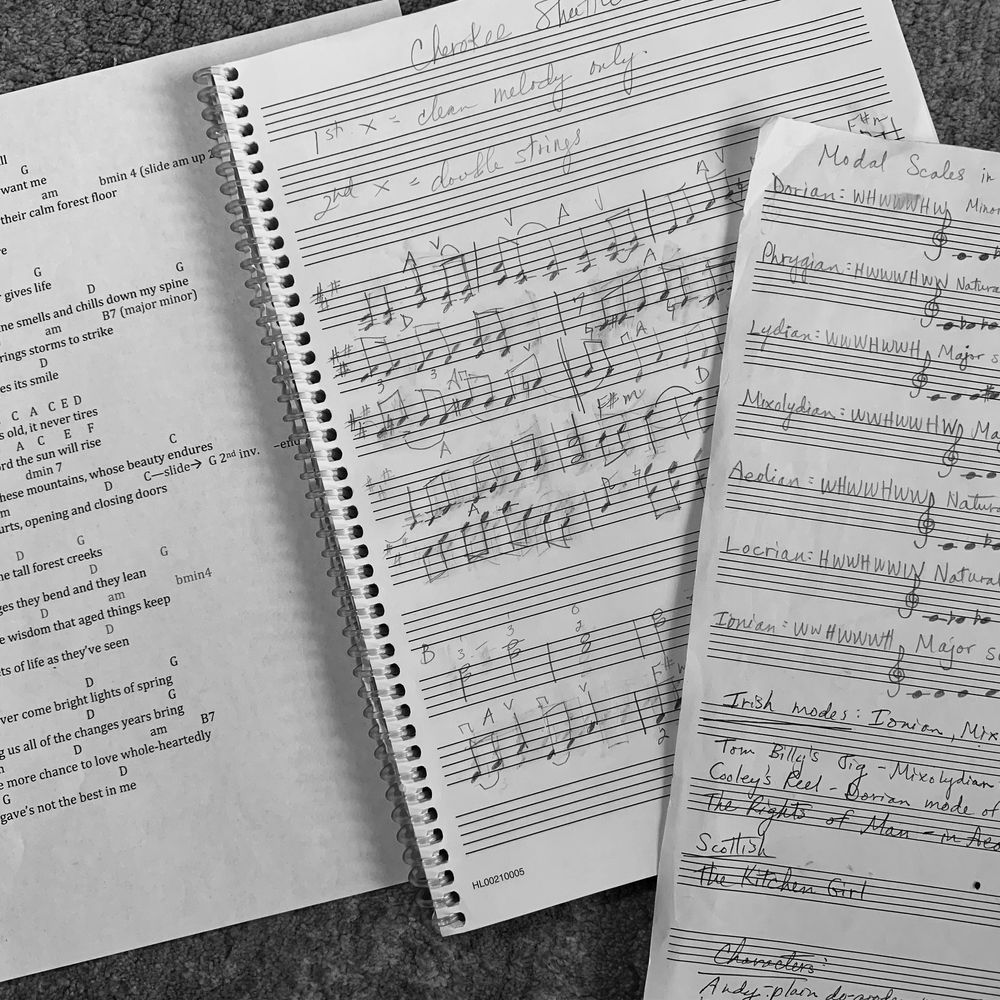 ll
G
want me
am bmin 4 (slide am up 2
their calm forest floor
re
G
r gives life
D G
ne smells and chills down my spine
am B7 (major minor)
rings storms to strike
D
es its smile
C A C E D
s old, it never tires
A C E F
ord the sun will rise
dmin 7 C
hese mountains, whose beauty endures
m D C—slide→ G 2nd inv. –end
urts, opening and closing doors
D G
he tall forest creeks
D G
ges they bend and they lean
D am bmin4
e wisdom that aged things keep
D
ets of life as they've seen
D G
ver come bright lights of spring
D G
g us all of the changes years bring
D am B7
e more chance to love whole-heartedly
G D
gave's not the best in me
Cherokee Shuffle
1st x = clean melody only
2nd x = double strings
F#m
A V V A V A V
D A A
3 3 A V D
A F#m
A
B 1 3 3 6 2
A V F#m
2
HL00210005
Modal Scales in
Dorian: WHWWWHW Minor
Phrygian: HWWWHWW Natura
Lydian: WWWHWWH Major s
Mixolydian: WWHWWHW Ma
Aeolian: WHWWHWW Natura
Locrian: HWWHWWW Natural
Ionian: WWHWWWH Major s
Irish modes: Ionian, Mix
Tom Billy's Jig - Mixolydian
Cooley's Reel - Dorian mode of
The Rights of Man - in Aeo
Scottish
The Kitchen Girl
Characters:
Andy-plain do-gooder